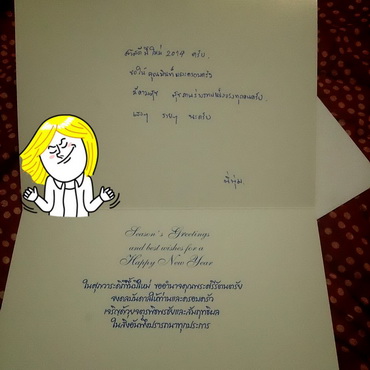 สวัสดีปีใหม่ 2014 ครับ.
ขอให้ คุณพันทิพ์และครอบครัว
มีความสุข สุขภาพร่างกายแข็งแรงทุกคนครับ.
เฮงๆ รวยๆ นะครับ
พี่ทุ่ม.
Season's Greetings
and best wishes for a
Happy New Year
ในศุภวาระดิถีขึ้นปีใหม่ ขออำนาจคุณพระศรีรัตนตรัย
จงดลบันดาลให้ท่านและครอบครัว
เจริญด้วยจตุรพิธพรชัยและสัมฤทธิผล
ในสิ่งอันพึงปรารถนาทุกประการ